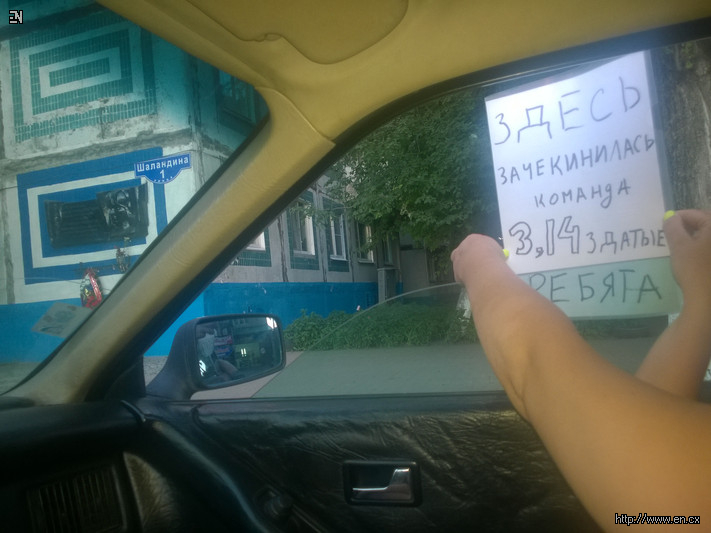 EN
Шаландина
1
ЗДЕСЬ
ЗАЧЕКИНИЛАСЬ
КОМАНДА
3,14 ЗДАТЫЕ
РЕБЯТА
http://www.en.cx